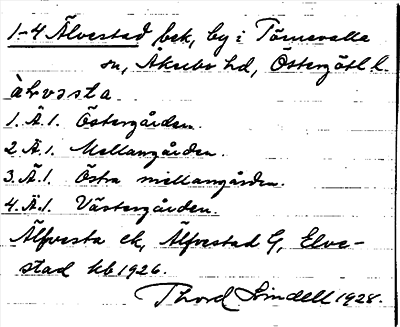 1-4 Älvestad bsk, by i Törnevalla
sn, Åkerbo hd, Östergötl l.
àlvəsta
1. Ä. 1. Östergården.
2. Ä. 1. Mellangården.
3. Ä. 1. Östra mellangården.
4. Ä. 1. Västergården.
Älfvesta ek, Älfvestad G, Elve-
stad kb 1926.
Thord Lindell 1928.